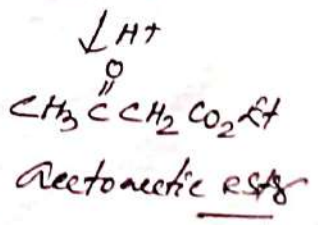 ↓ H+
O
||
CH3 C CH2 CO2Et
Acetoacetic ester